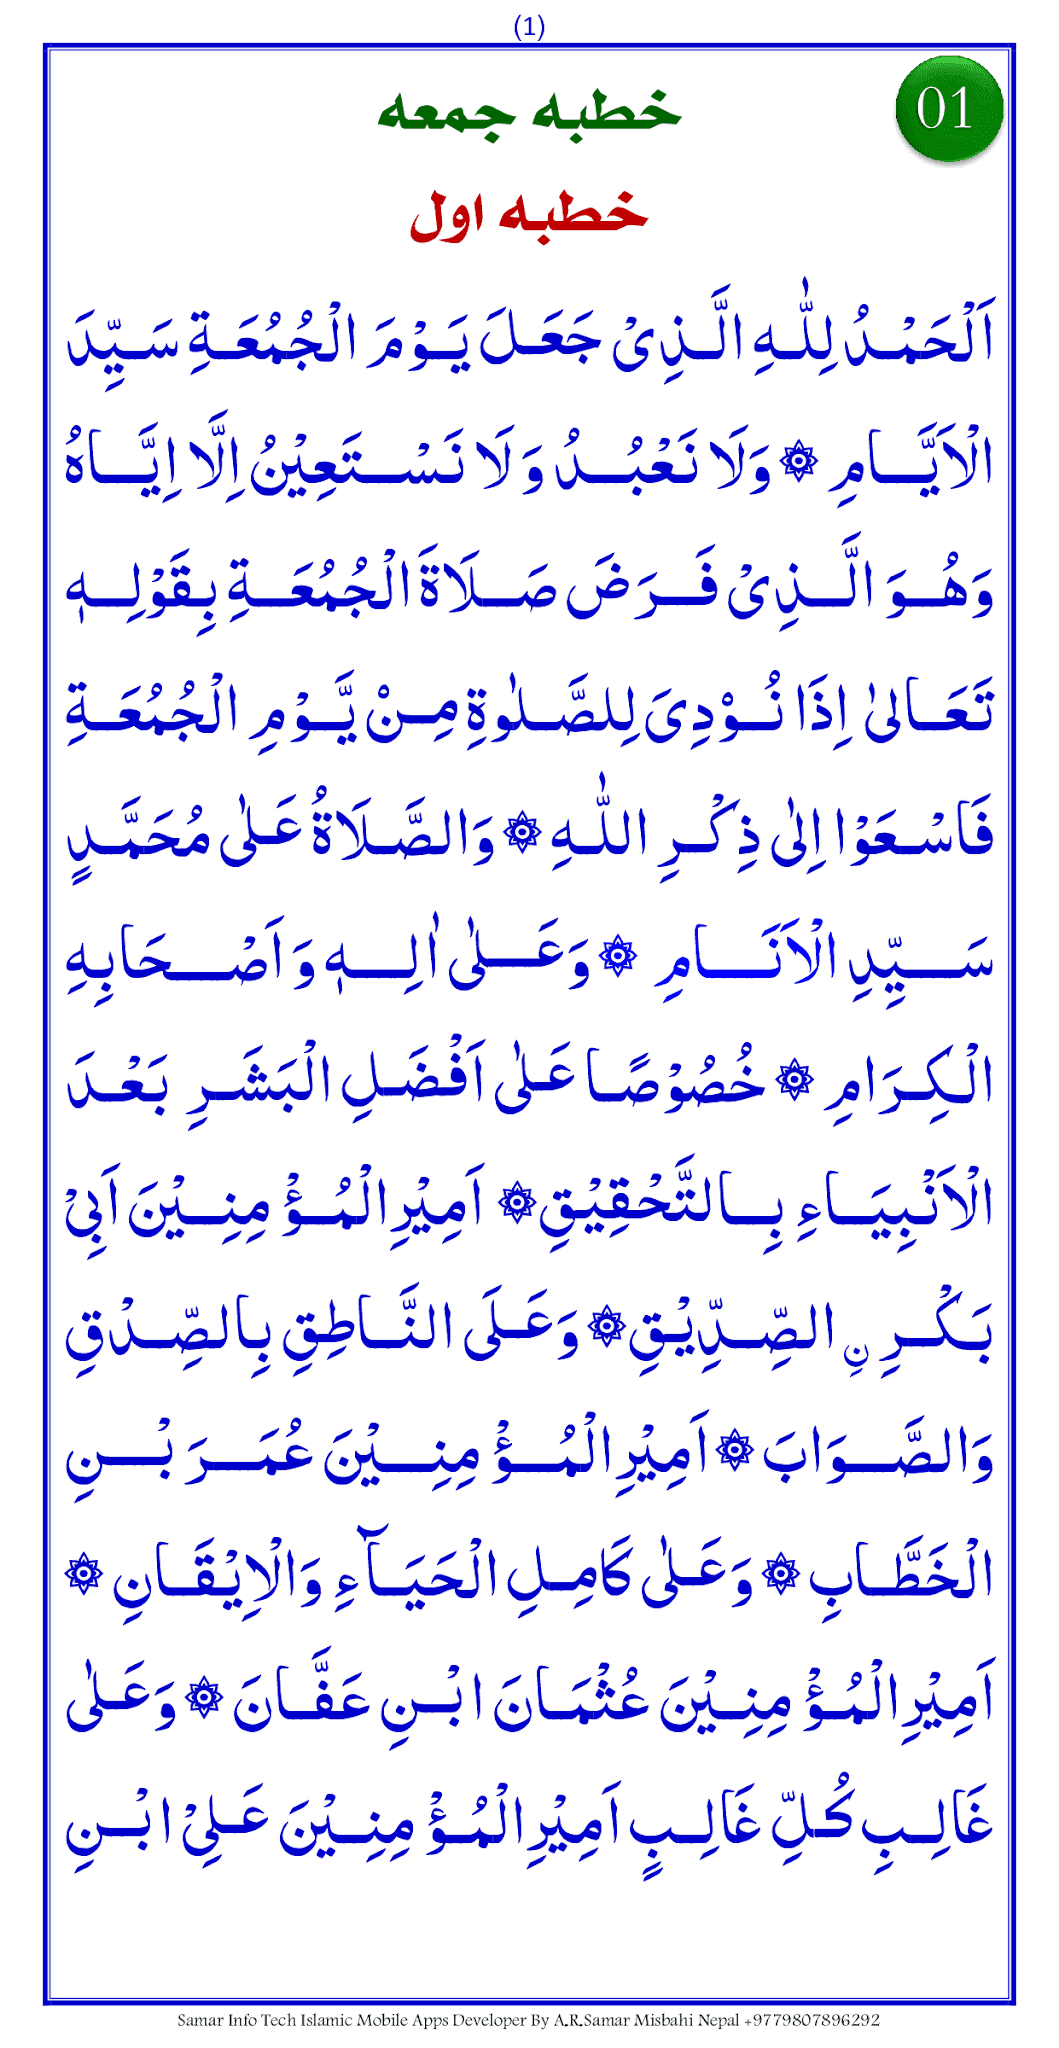 (1)
01
خطبہ جمعہ
خطبہ اول
اَلْحَمْدُ لِلّٰهِ الَّذِیْ جَعَلَ یَوْمَ الْجُمُعَةِ سَیِّدَ
الْاَیَّامِ ۞ وَلَا نَعْبُدُ وَلَا نَسْتَعِیْنُ اِلَّا اِیَّاهُ
وَهُوَ الَّذِیْ فَرَضَ صَلَاةَ الْجُمُعَةِ بِقَوْلِهٖ
تَعَالیٰ اِذَا نُوْدِیَ لِلصَّلٰوةِ مِنْ یَّوْمِ الْجُمُعَةِ
فَاسْعَوْا اِلیٰ ذِكْرِ اللّٰهِ ۞ وَالصَّلَاةُ عَلیٰ مُحَمَّدٍ
سَیِّدِ الْاَنَامِ ۞ وَعَلیٰ اٰلِهٖ وَاَصْحَابِهِ
الْكِرَامِ ۞ خُصُوْصًا عَلیٰ اَفْضَلِ الْبَشَرِ بَعْدَ
الْاَنْبِیَاءِ بِالتَّحْقِیْقِ ۞ اَمِیْرِ الْمُؤْمِنِیْنَ اَبِیْ
بَكْرِ نِ الصِّدِّیْقِ ۞ وَعَلَی النَّاطِقِ بِالصِّدْقِ
وَالصَّوَابَ ۞ اَمِیْرِ الْمُؤْمِنِیْنَ عُمَرَ بْنِ
الْخَطَّابِ ۞ وَعَلیٰ كَامِلِ الْحَیَآءِ وَالْاِیْقَانِ ۞
اَمِیْرِ الْمُؤْمِنِیْنَ عُثْمَانَ ابْنِ عَفَّانَ ۞ وَعَلیٰ
غَالِبِ كُلِّ غَالِبٍ اَمِیْرِ الْمُؤْمِنِیْنَ عَلِیْ ابْنِ
Samar Info Tech Islamic Mobile Apps Developer By A.R.Samar Misbahi Nepal +9779807896292